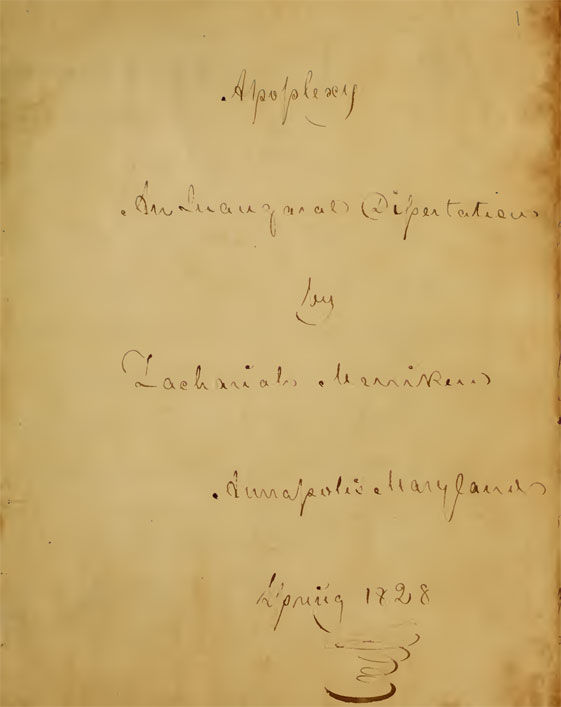 1
Apoplexy
An Inaugural Dissertation
by
Zachariah Merriken
Annapolis Maryland
Spring 1828